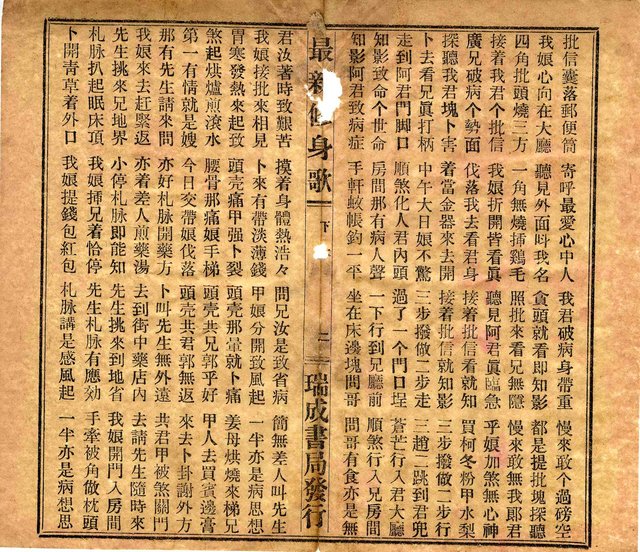 批信囊落郵便筒 寄呼最愛心中人 我君破病身帶重 慢來敢个過磅空
我娘心向在大廳 聽見外面呌我名 貪頭就看即知影 都是提批塊探聽
四角批頭燒三方 一角無燒揷鷄毛 照批來看兄無隱 慢來敢無我郎君
接着我君个批信 我娘折開皆看眞 聽見阿君眞臨急 乎娘加煞無心神
廣兄破病个勢面 伐落我去看君身 接着批信看就知 買柯冬粉甲水梨
探聽我君塊卜害 着當金器來去開 接着批信就知影 三步撥做二步行
卜去看兄眞打柄 中午大日娘不驚 三步撥做二步走 三趟二跳到君兜
走到阿君門脚口 順煞化人君內頭 過了一个門口埕 蒼芒行入君大廳
知影致命个世命 房間那有病人聲 一下行到兄廳前 順煞行入兄房間
知影阿君致病症 手軒蚊帳釣一平 坐在床邊塊問哥 問哥有食亦是無
最新 身歌 下 二 瑞成書局發行
君汝著時致艱苦 摸着身體熱浩々 問兄汝是致省病 簡無差人叫先生
我娘接批來相見 卜來有帶淡薄錢 甲娘分開致風起 一半亦是病思想
胃寒發熱來起致 頭壳痛甲强卜裂 頭壳那暈就卜痛 姜母烘燒來梯兄
煞起烘爐煎滾水 腰骨那痛娘手梯 頭壳共兄郭乎好 甲人去買賓邊膏
第一有情就是娘 今日交帶娘伐落 先生共君郭無返 來去卜卦謝外方
那有先生請來問 亦好札脉開藥方 卜叫先生無外遠 共君甲被煞關門
我娘來去赶緊返 亦着差人煎藥湯 去到街中藥店內 去請先生隨時來
先生挑來兄地界 小停札脉即能知 先生挑來到地省 我娘開門入房間
札脉扒起眠床頂 我娘揷兄着恰停 先生札脉有應効 手牽被角做枕頭
卜開青草着外口 我娘提錢包紅包 札脉講是感風起 一半亦是病想思